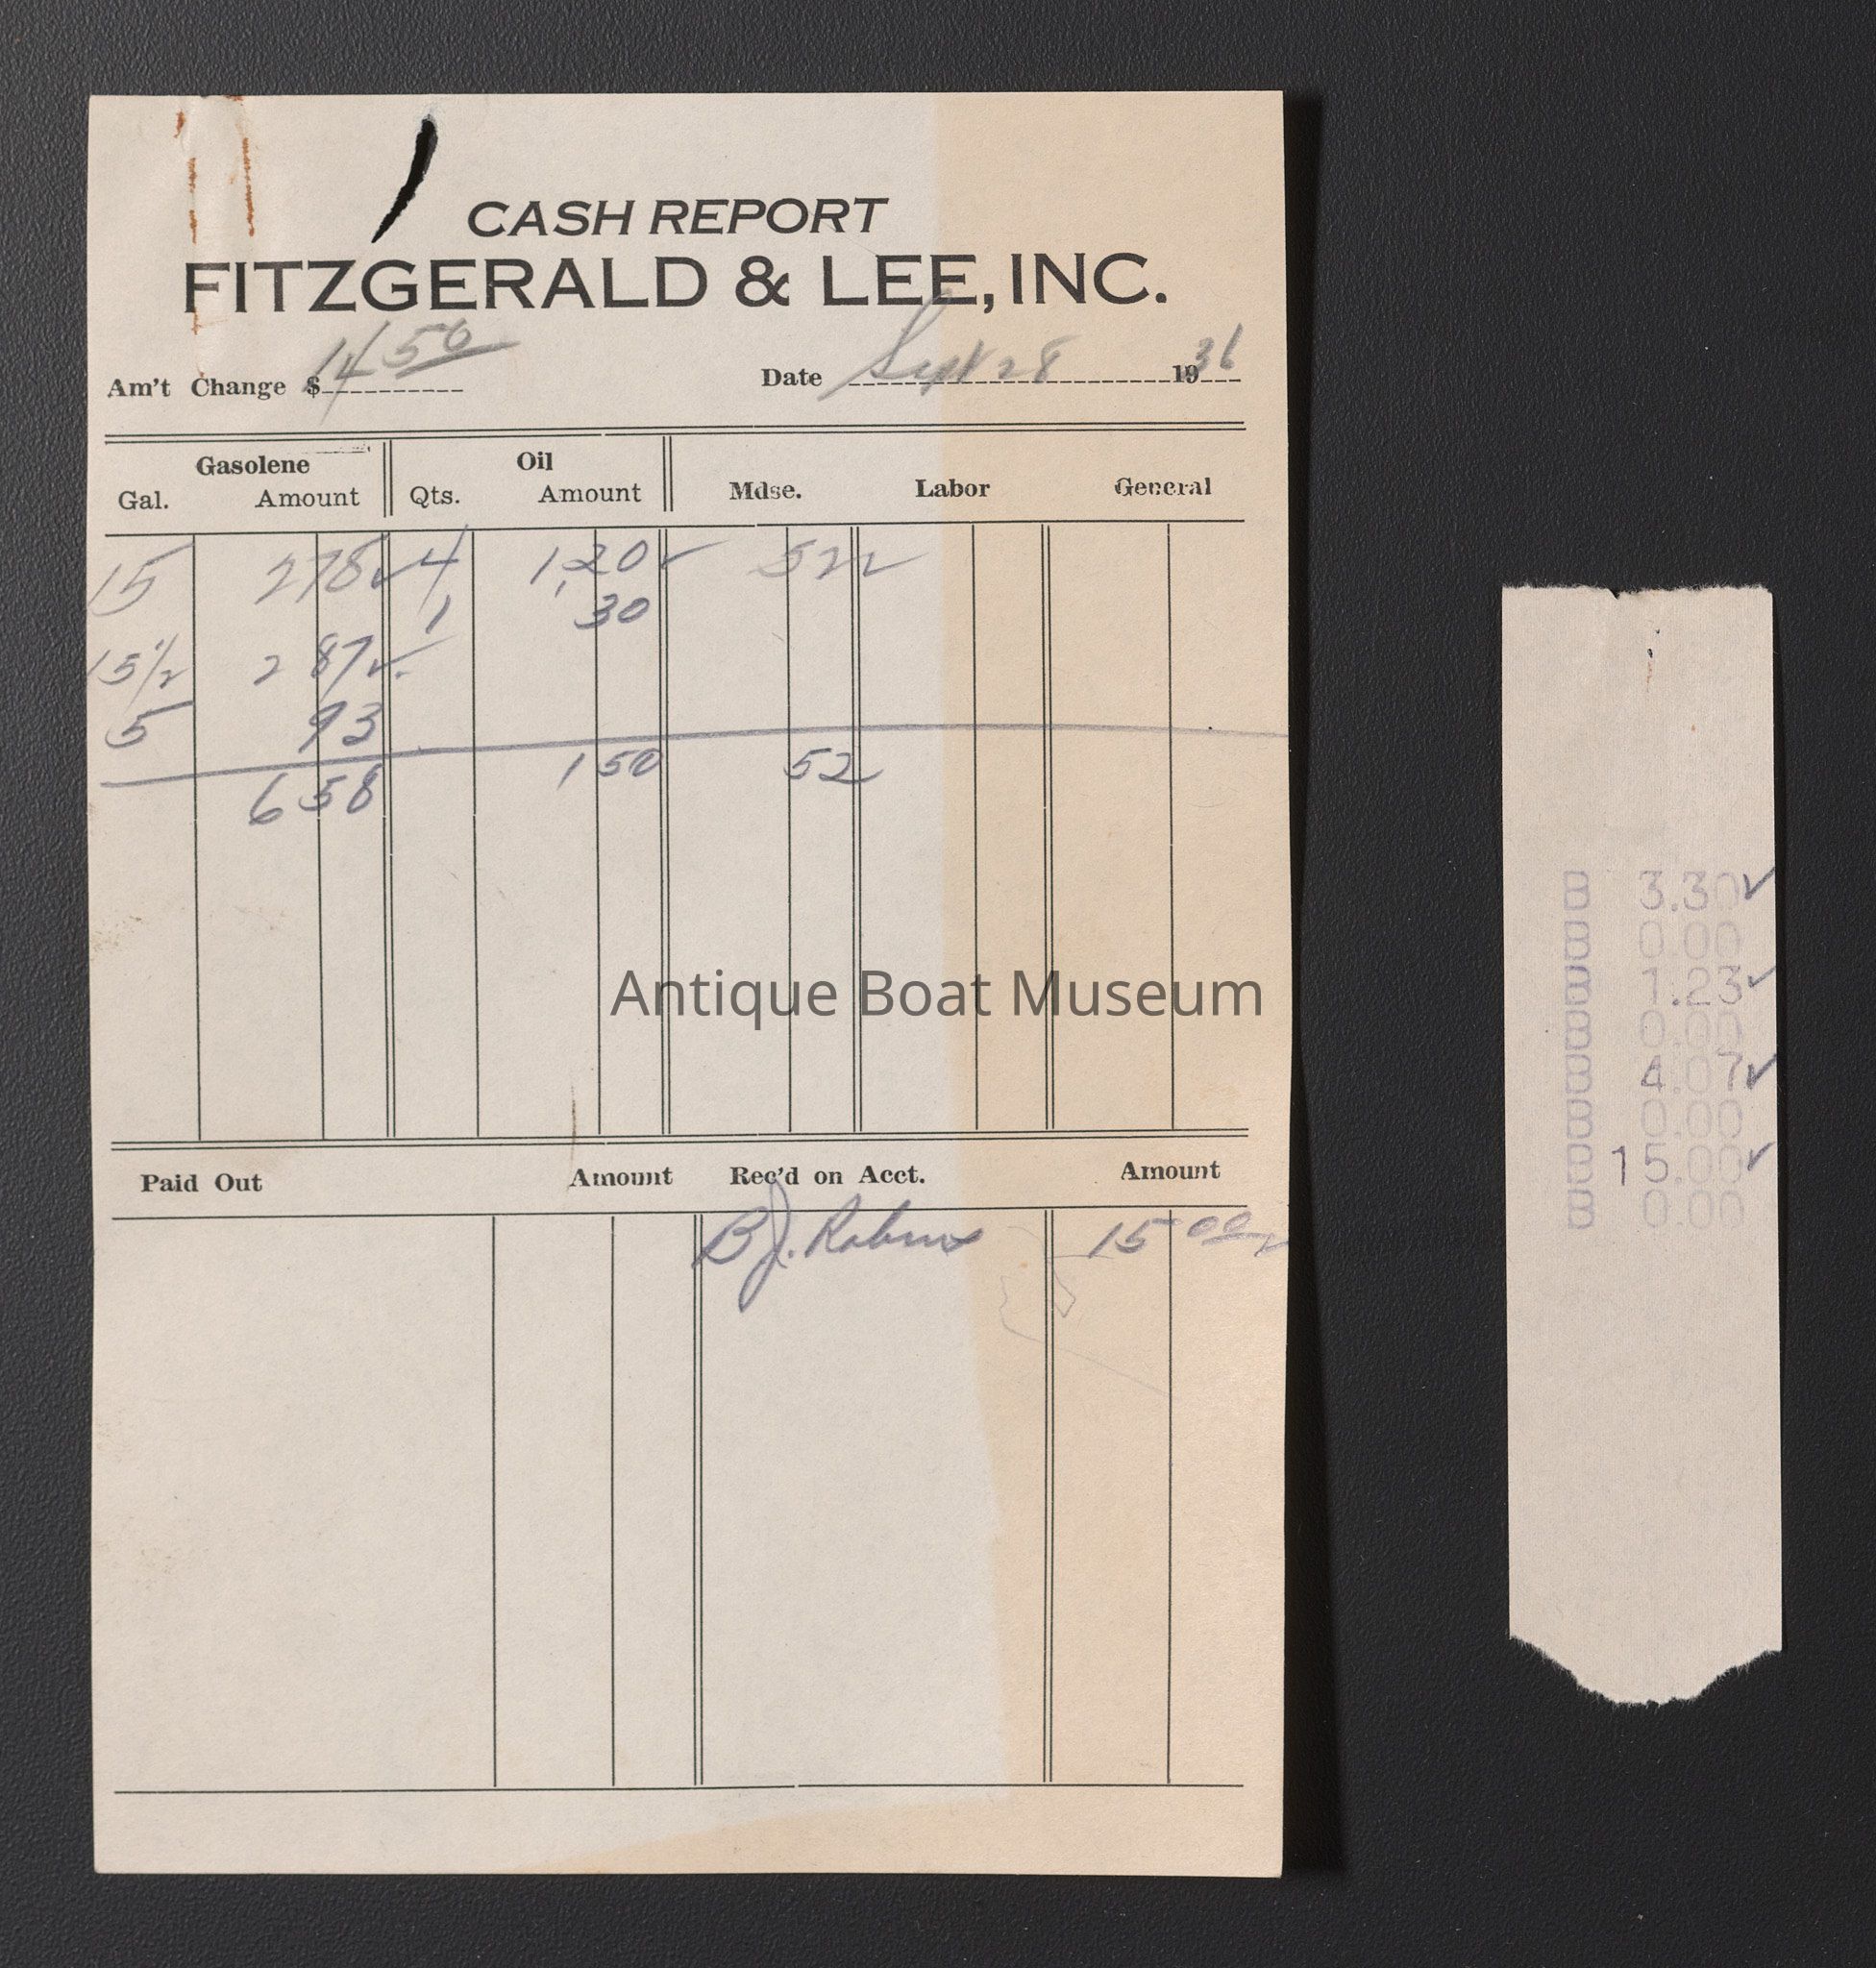 CASH REPORT
FITZGERALD & LEE, INC.
Am't Change $ 14 50 Date Sept 28 1936
Gasolene Oil
Gal. Amount Qts. Amount Mdse. Labor General
15 278 4 1,20 52
1 30
15 1/2 2 87
5 93
6 58 1 50 52
Antique Boat Museum
Paid Out Amount Rec'd on Acct. Amount
B J. 15 00
B 3.30
B 0.00
B 1.23
B 0.00
B 4.07
B 0.00
B 15.00
B 0.00